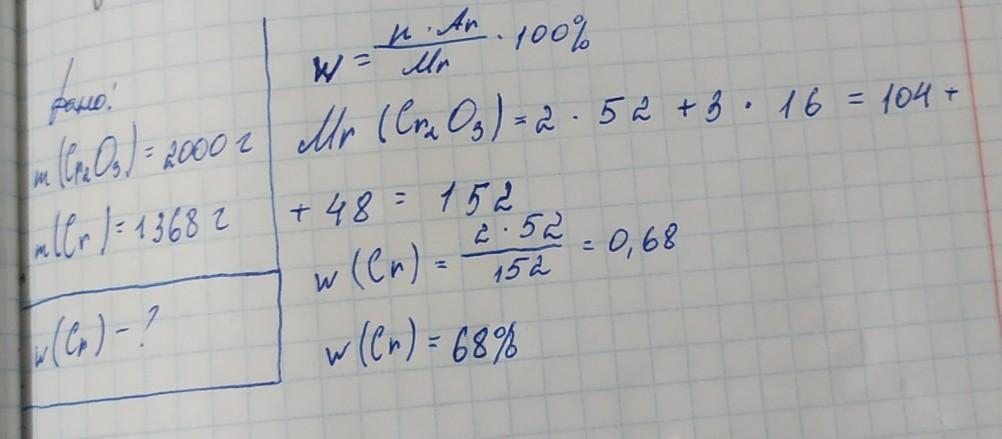 Дано:
m(Cr₂O₃) = 2000 г
m(Cr) = 1368 г
w(Cr) - ?
w = n · Ar / Mr · 100%
Mr (Cr₂O₃) = 2 · 52 + 3 · 16 = 104 +
+ 48 = 152
w (Cr) = 2 · 52 / 152 = 0,68
w (Cr) = 68%